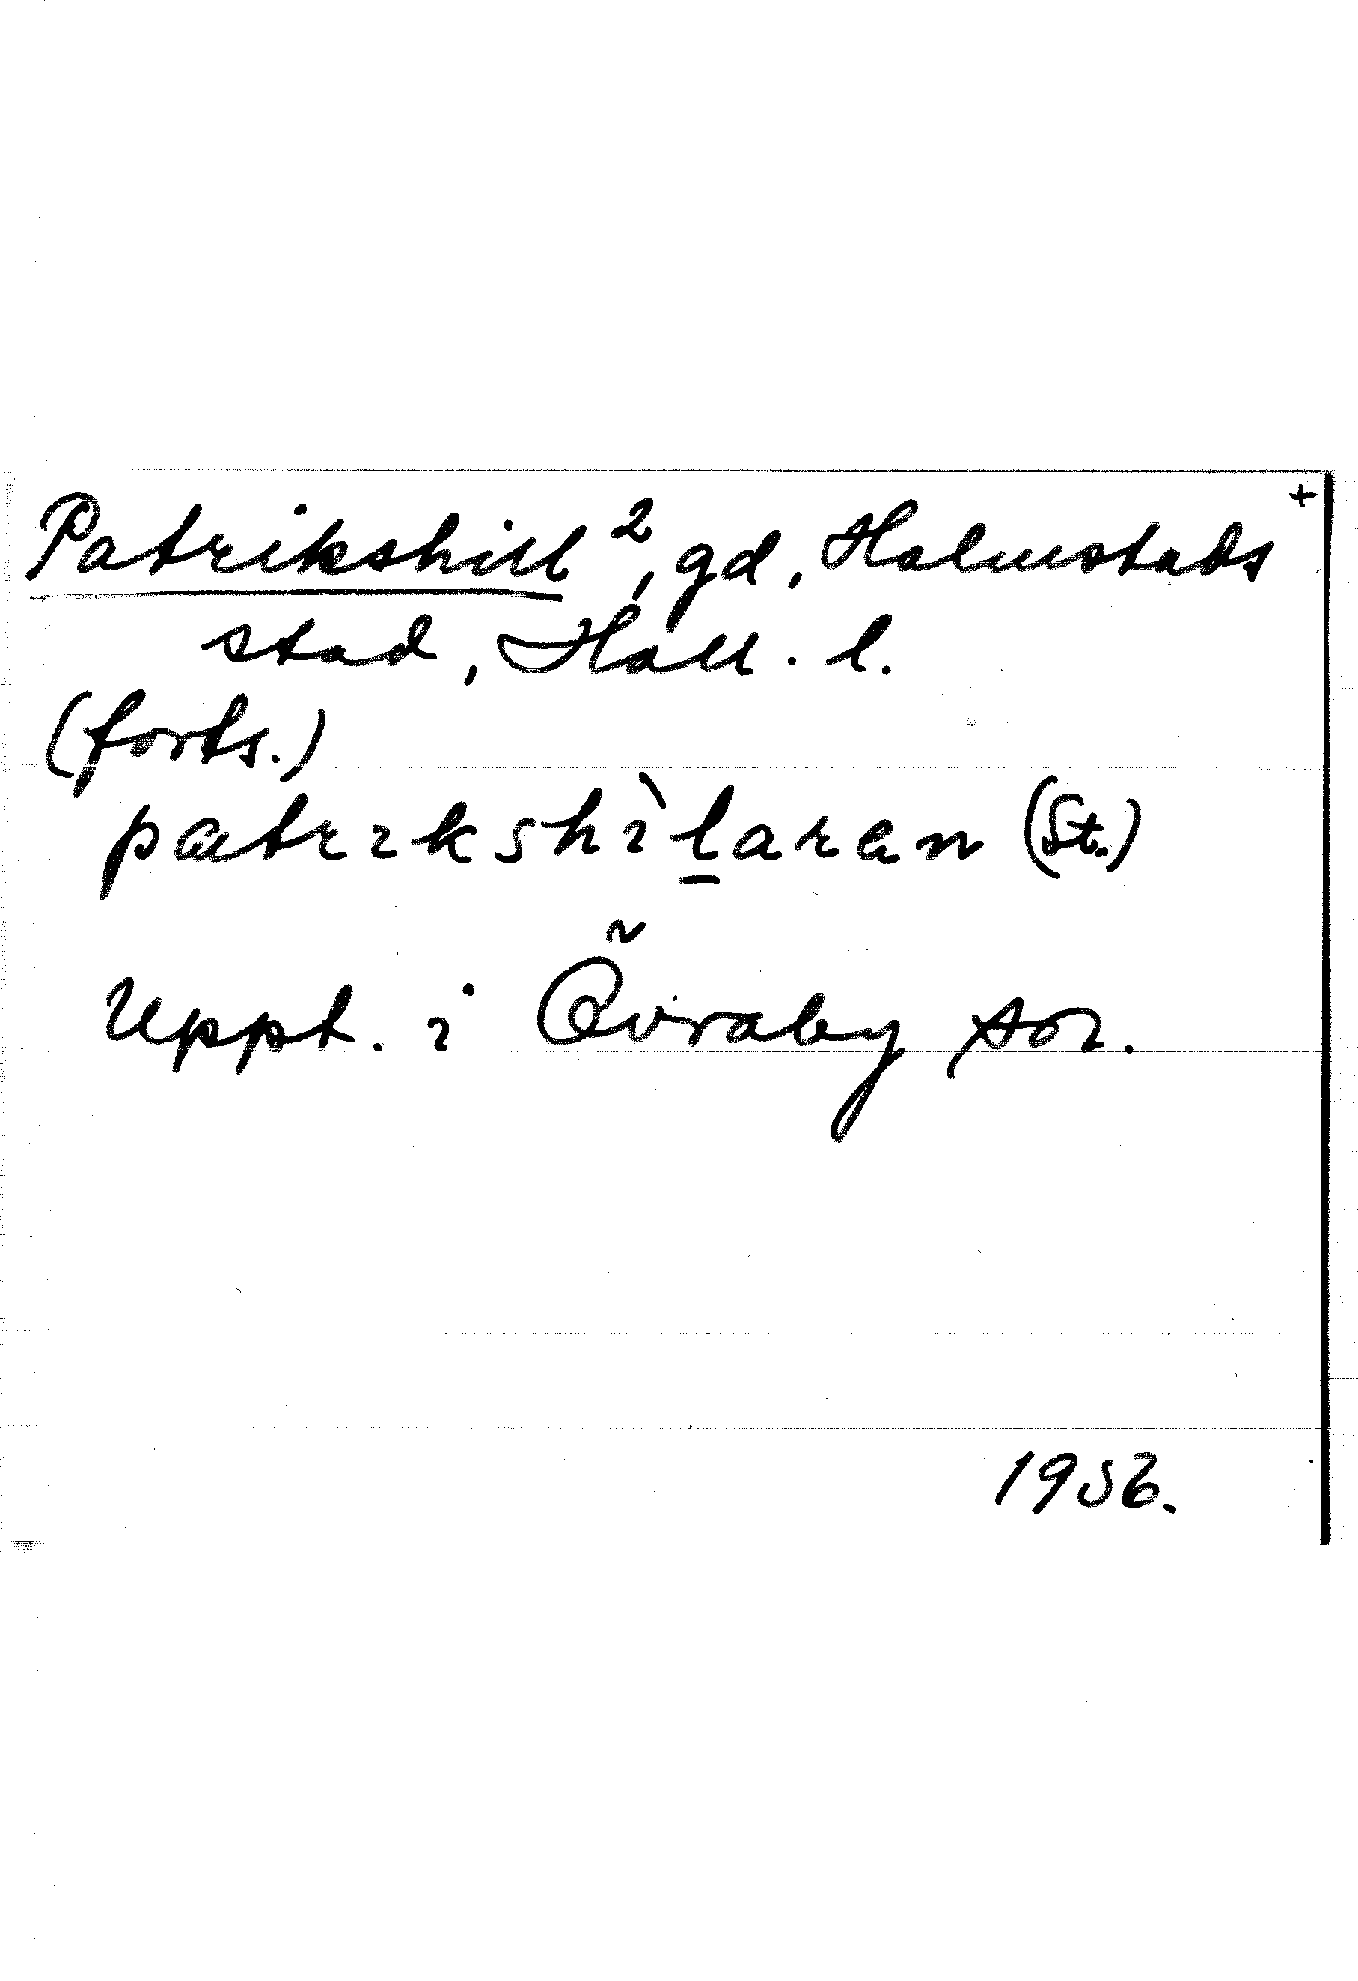 +
Patrikshill², gd, Halmstads
stad, Hall. l.
(forts.)
patrikshìl̲aran (St.)
Uppt. i Övraby sn.
1956.